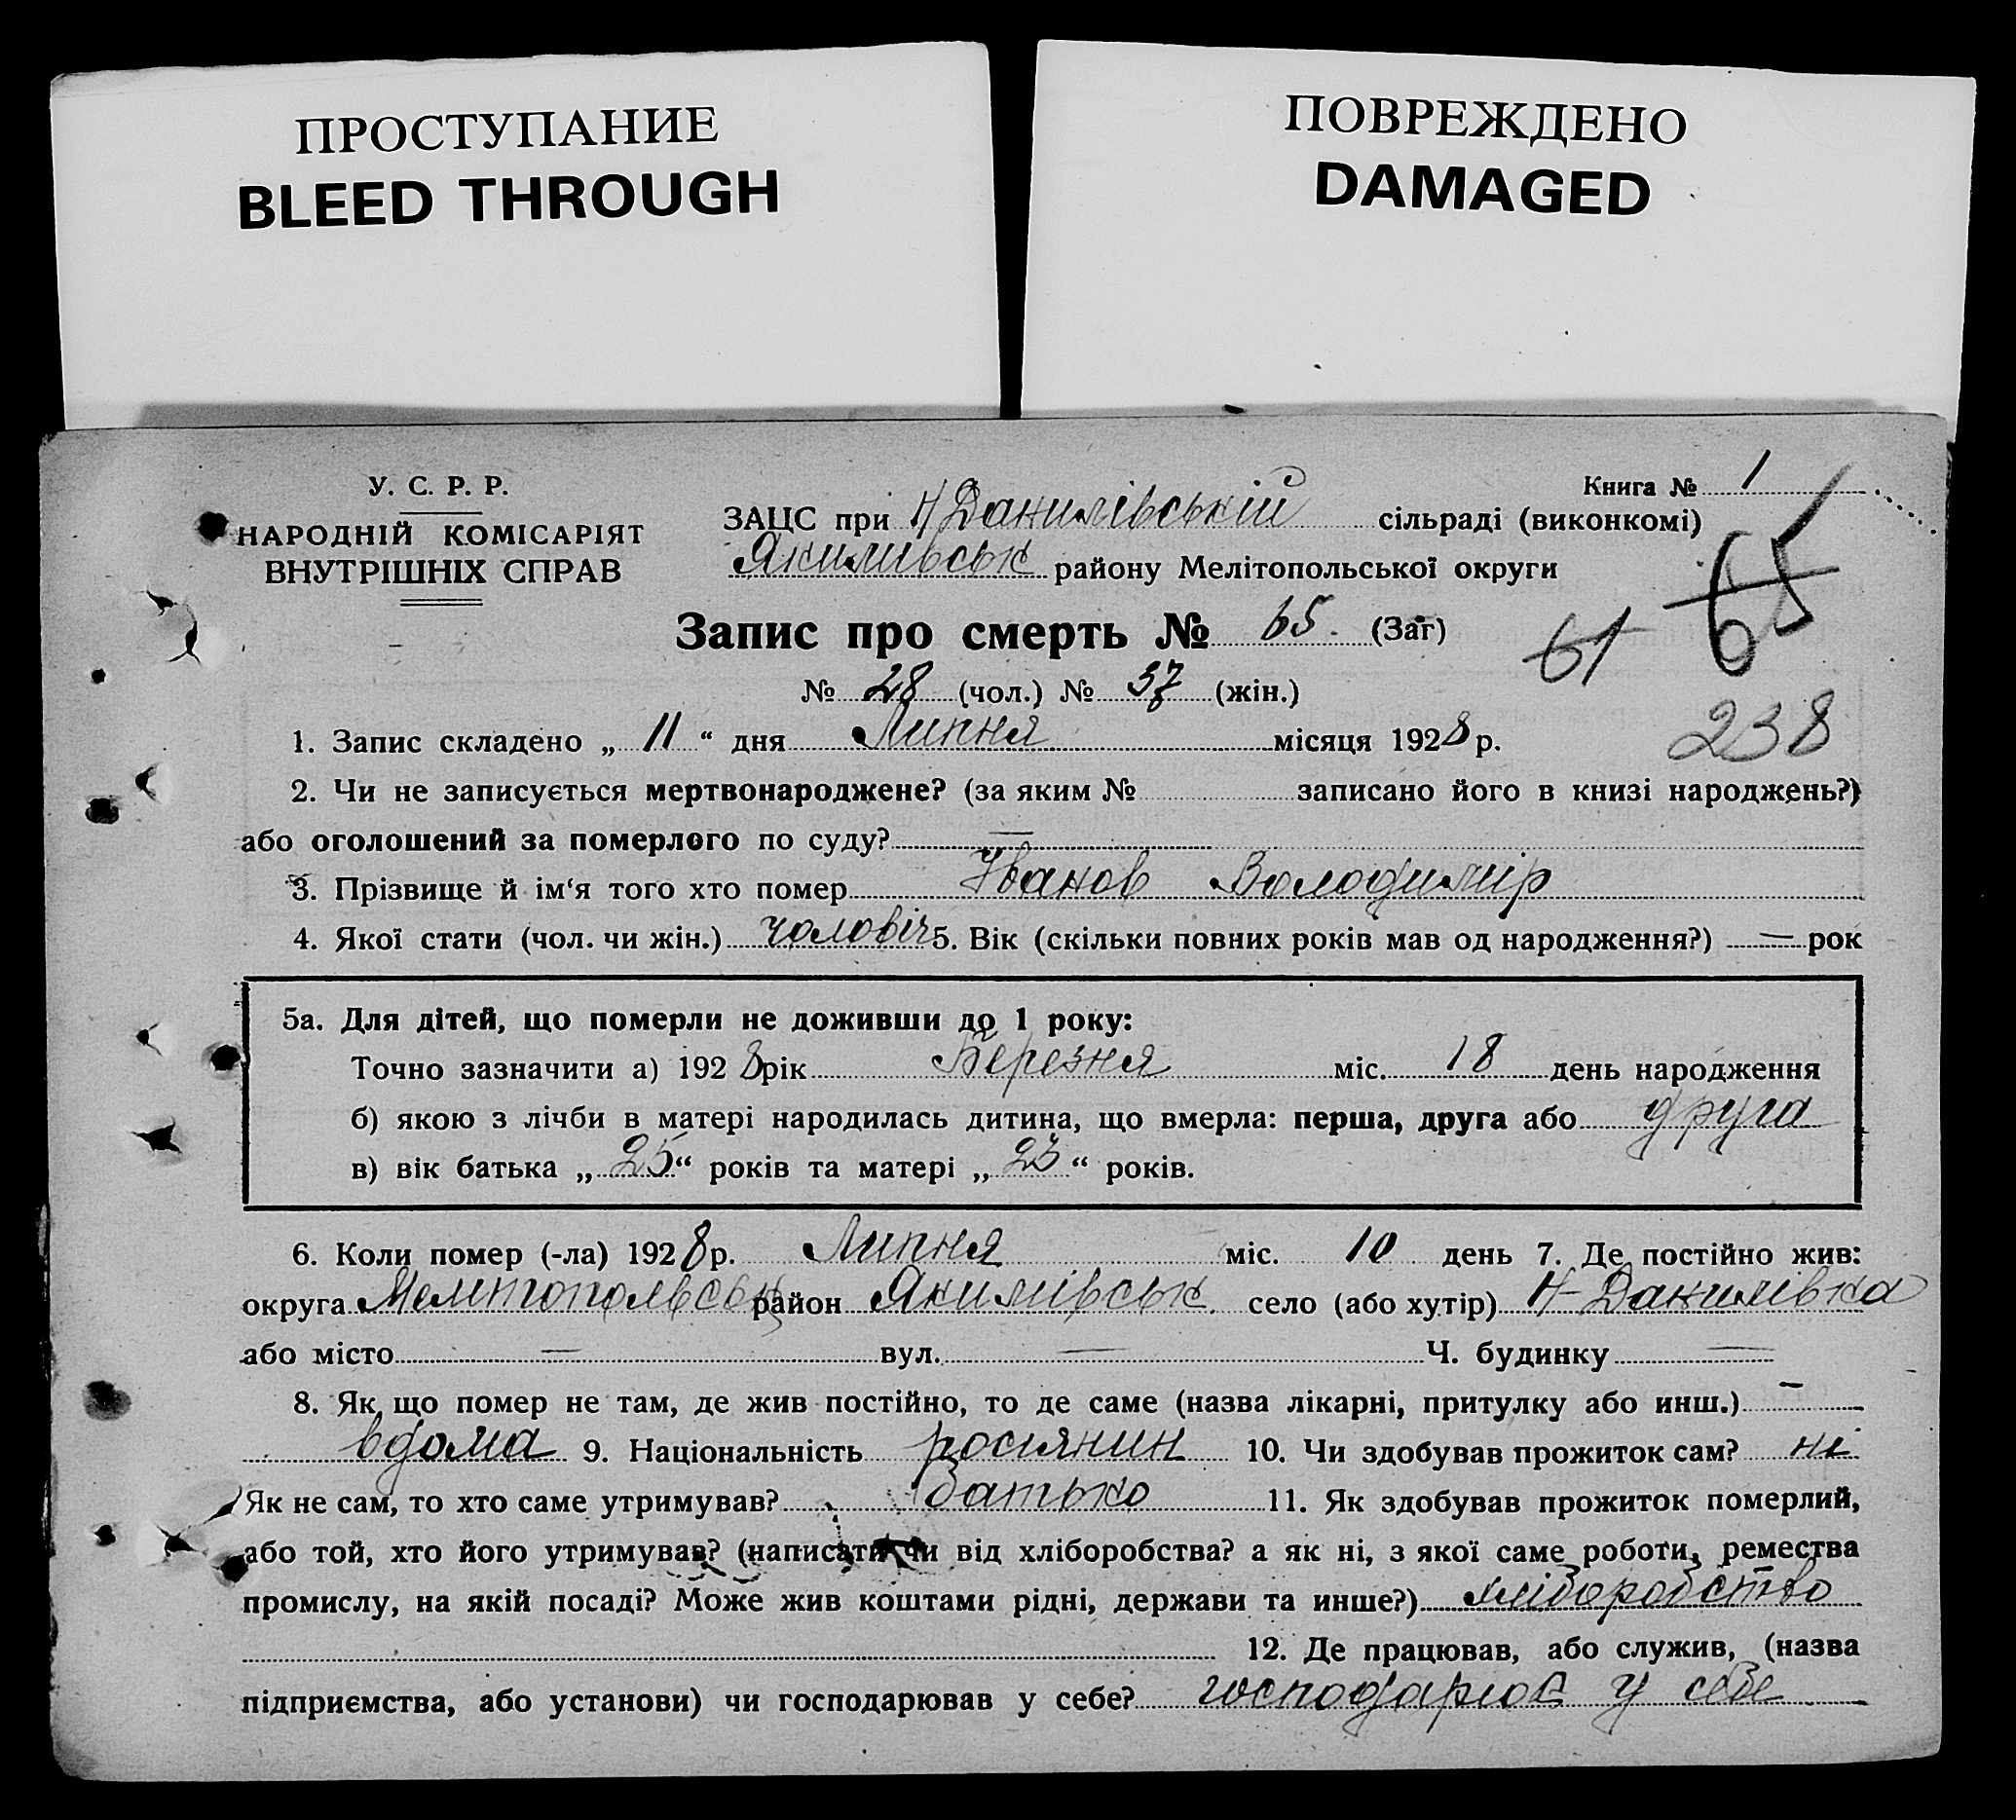 ПРОСТУПАНИЕ
BLEED THROUGH
ПОВРЕЖДЕНО
DAMAGED
У. С. Р. Р.
НАРОДНІЙ КОМІСАРІЯТ
ВНУТРІШНІХ СПРАВ
Книга № 1
ЗАЦС при Н Данилівській сільраді (виконкомі)
Якимівськ району Мелітопольської округи
65
Запис про смерть № 65. (Заг)
61
№ 28 (чол.) № 37 (жін.)
238
1. Запис складено „ 11 “ дня Липня місяця 1928 р.
2. Чи не записується мертвонароджене? (за яким № записано його в книзі народжень?)
або оголошений за померлого по суду? —
3. Прізвище й ім‘я того хто помер Іванов Володимир
4. Якої стати (чол. чи жін.) чоловіч 5. Вік (скільки повних років мав од народження?) — рок
5а. Для дітей, що померли не доживши до 1 року:
Точно зазначити а) 1928 рік Березня міс. 18 день народження
б) якою з лічби в матері народилась дитина, що вмерла: перша, друга або друга
в) вік батька „ 25 “ років та матері „ 23 “ років.
6. Коли помер (-ла) 1928 р. Липня міс. 10 день 7. Де постійно жив:
округа Мелітопольськ район Якимівськ. село (або хутір) Н-Данилівка
або місто — вул. — Ч. будинку —
8. Як що помер не там, де жив постійно, то де саме (назва лікарні, притулку або инш.) —
вдома 9. Національність росіянин 10. Чи здобував прожиток сам? ні
Як не сам, то хто саме утримував? Батько 11. Як здобував прожиток померлий,
або той, хто його утримував? (написати чи від хліборобства? а як ні, з якої саме роботи, ремества
промислу, на якій посаді? Може жив коштами рідні, держави та инше?) хліборобство
12. Де працював, або служив, (назва
підприємства, або установи) чи господарював у себе? господарював у себе